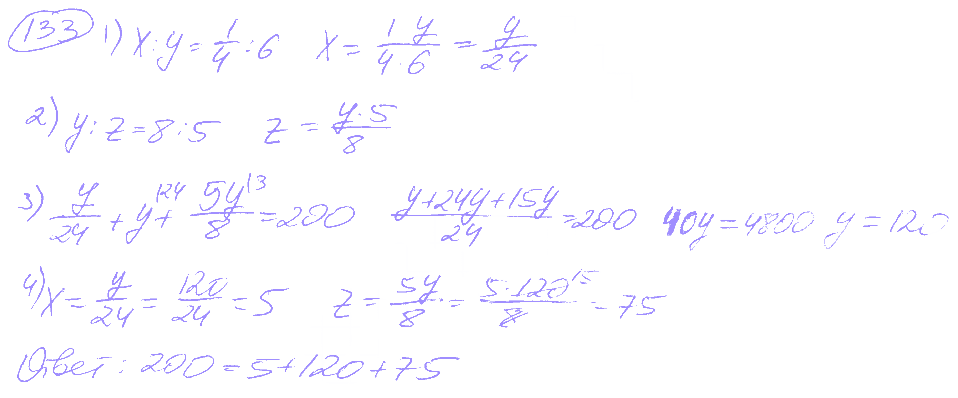 133 1) x:y = 1/4 : 6 x = (1 y)/(4·6) = y/24
2) y:z = 8:5 z = (y·5)/8
3) y/24 + y|24 + 5y|3/8 = 200 (y+24y+15y)/24 = 200 40y = 4800 y = 120
4) x = y/24 = 120/24 = 5 z = 5y/8 = (5·120 15)/8 = 75
Ответ: 200 = 5+120+75